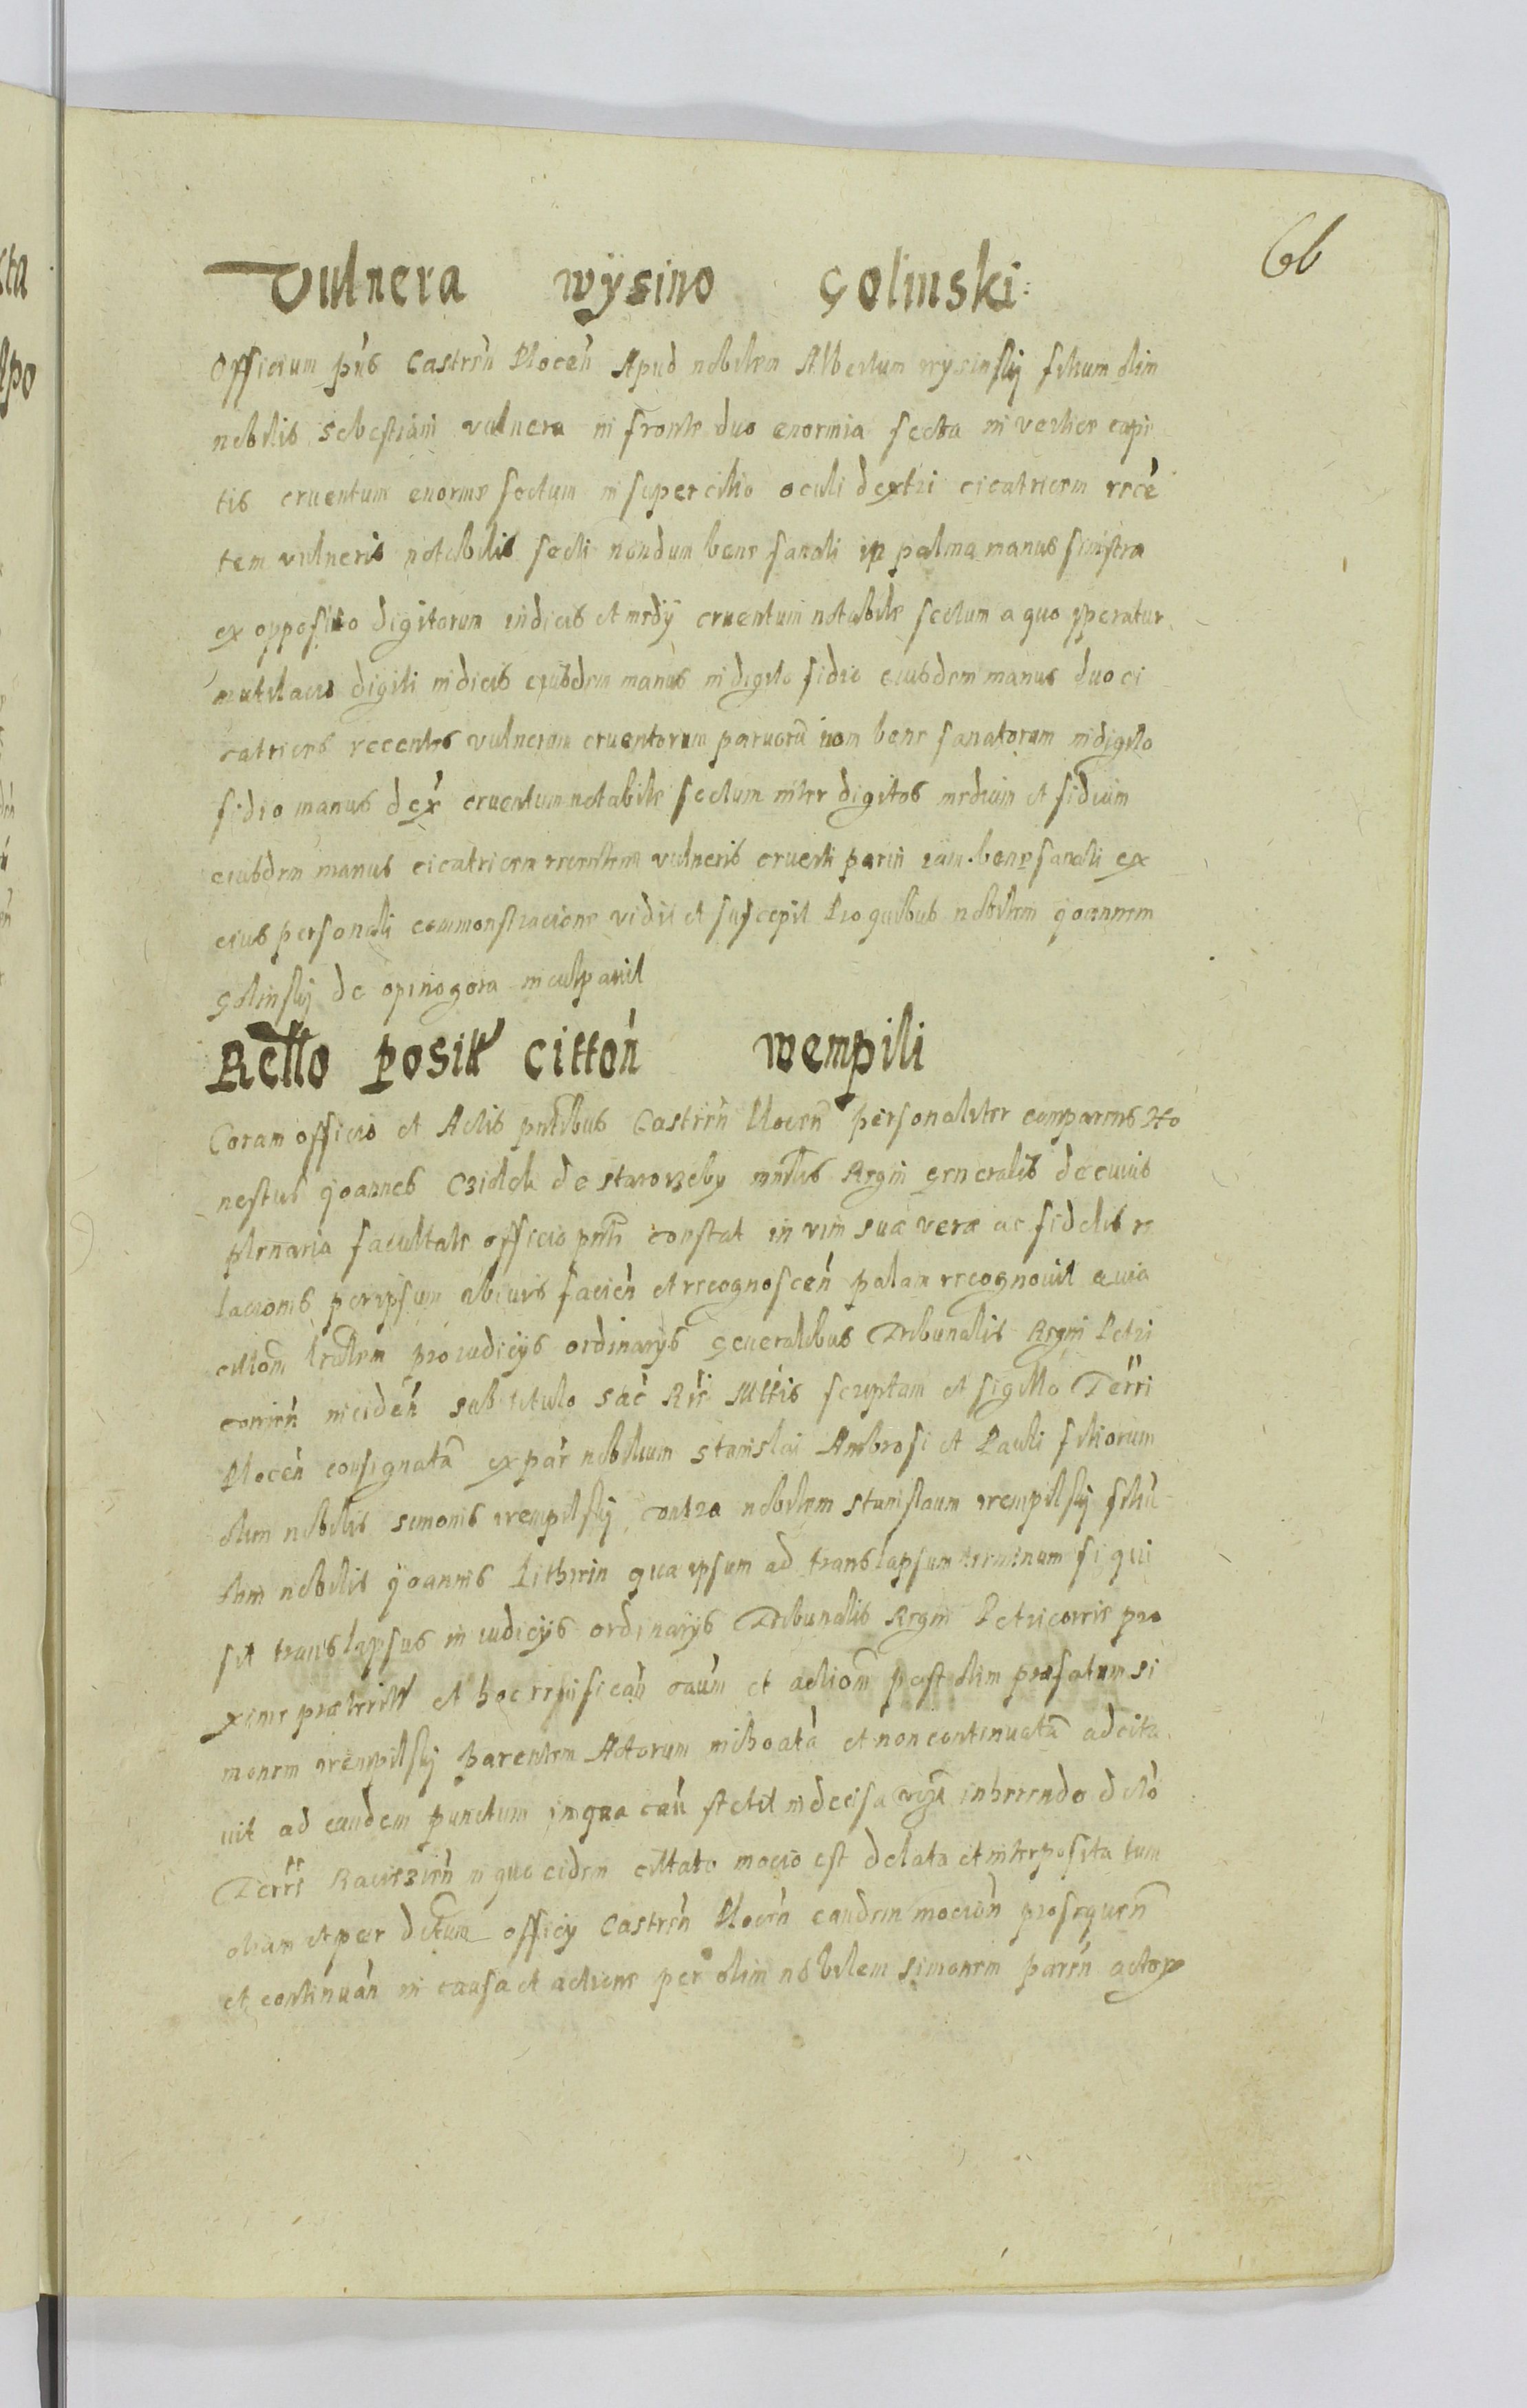 66
Vulnera wÿsino Golinski:
Officium pńs Castreń Ploceń Apud nobilem Albertum wysinskÿ filium olim
nobilis Sebestiani vulnera in fronte duo enormia secta in vertice capi
tis cruentum enorme sectum in supercilio oculi dextri cicatricem recē
tem vulneris notabilis secti nondum bene sanati in palma manus sinistra
ex opposito digitorum indicis et medÿ cruentum notabile sectum a quo speratur
mutilacio digiti indicis eiusdem manus in digito fidio eiusdem manus duo ci
catrices recentes vulnerum cruentorum paruorū iam bene sanatorum in digito
fidio manus dex̄ cruentum notabile sectum inter digitos medium et fidium
eiusdem manus cicatricem recentem vulneris cruenti parui iam bene sanati ex
eius personali commonstracione vidit et suscepit Pro quibus nobilem Joannem
Golinskÿ de opinogora inculpauit
Rello posit cittoń wempili
Coram officio et Actis pntibus Castreń Ploceń personaliter comparens Ho
nestus Joannes Cziolek de starorzeby mnrlis Regni generalis de cuius
plenaria facultate officio pnti constat in vim suæ veræ ac fidelis re
lacionis per ipsum ubiuis facień et recognosceń palam recognouit quia
cittom lralem pro iudicÿs ordinarÿs generalibus Tribunalis Regni Petri
comień incideń sub titulo Sac Rii Mttis scriptam et sigillo Terri
Ploceń consignatā ex par nobilium Stanislai Ambrosi et Pauli filiorum
olim nobilis Simonis wempilskÿ contra nobilem Stanislaum wempilskÿ filiū
olim nobilis Joannis qua ipsum ad translapsum terminum si qui
sit translapsus in iudicÿs ordinarÿs Tribunalis Regni Petricouie pro
xime præterit et hoc causm et actiom post olim præfatum Si
monem wempilskÿ parentem Actorum inchoatā et non continuatā adcita
uit ad eundem punctum in qua cau stetit indecisa inherendo dcto
Terri Raciązień in quo eidem cittato mocio est delata et interposita tum
etiam et per dctum officÿ Castreń Ploceń eandem mocioń prosequeń
et continuań in causa et actione per olim nobilem Simonem pareń actor